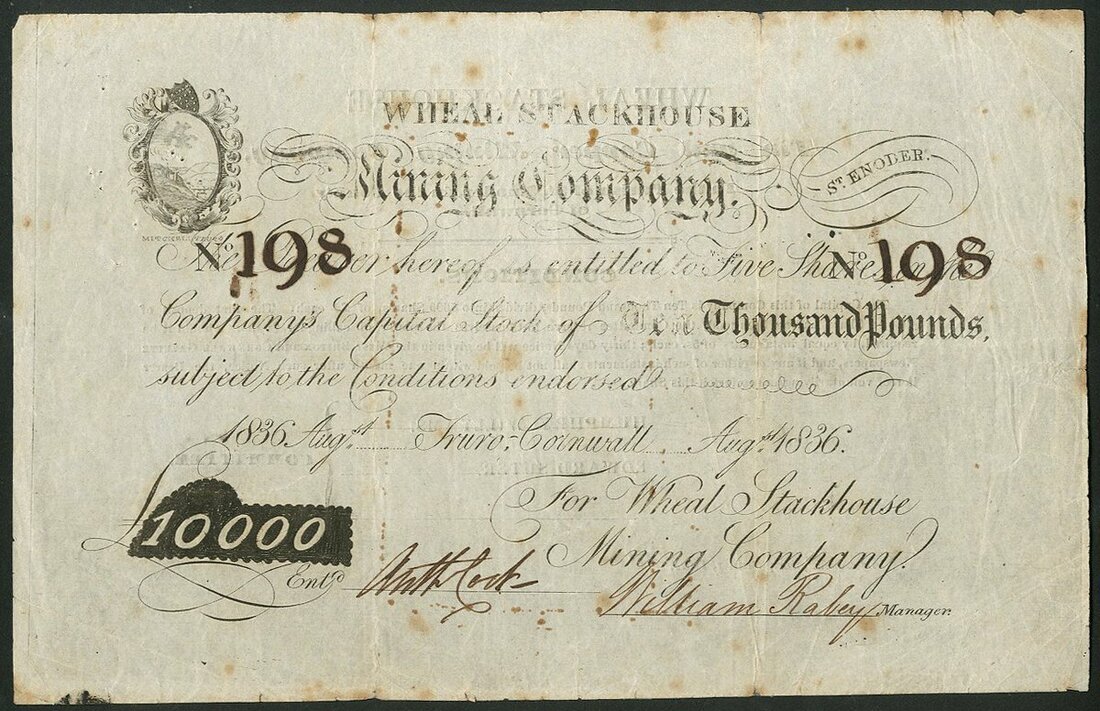 WHEAL STACKHOUSE
Mining Company.
ST. ENODER.
No. 198 No. 198
The Bearer hereof is entitled to Five Shares in the
Company's Capital Stock of Ten Thousand Pounds,
subject to the Conditions endorsed
1836. Augst. Truro, Cornwall. Augst. 1836.
For Wheal Stackhouse
£10000 Mining Company.
Entd. William Rabey Manager.